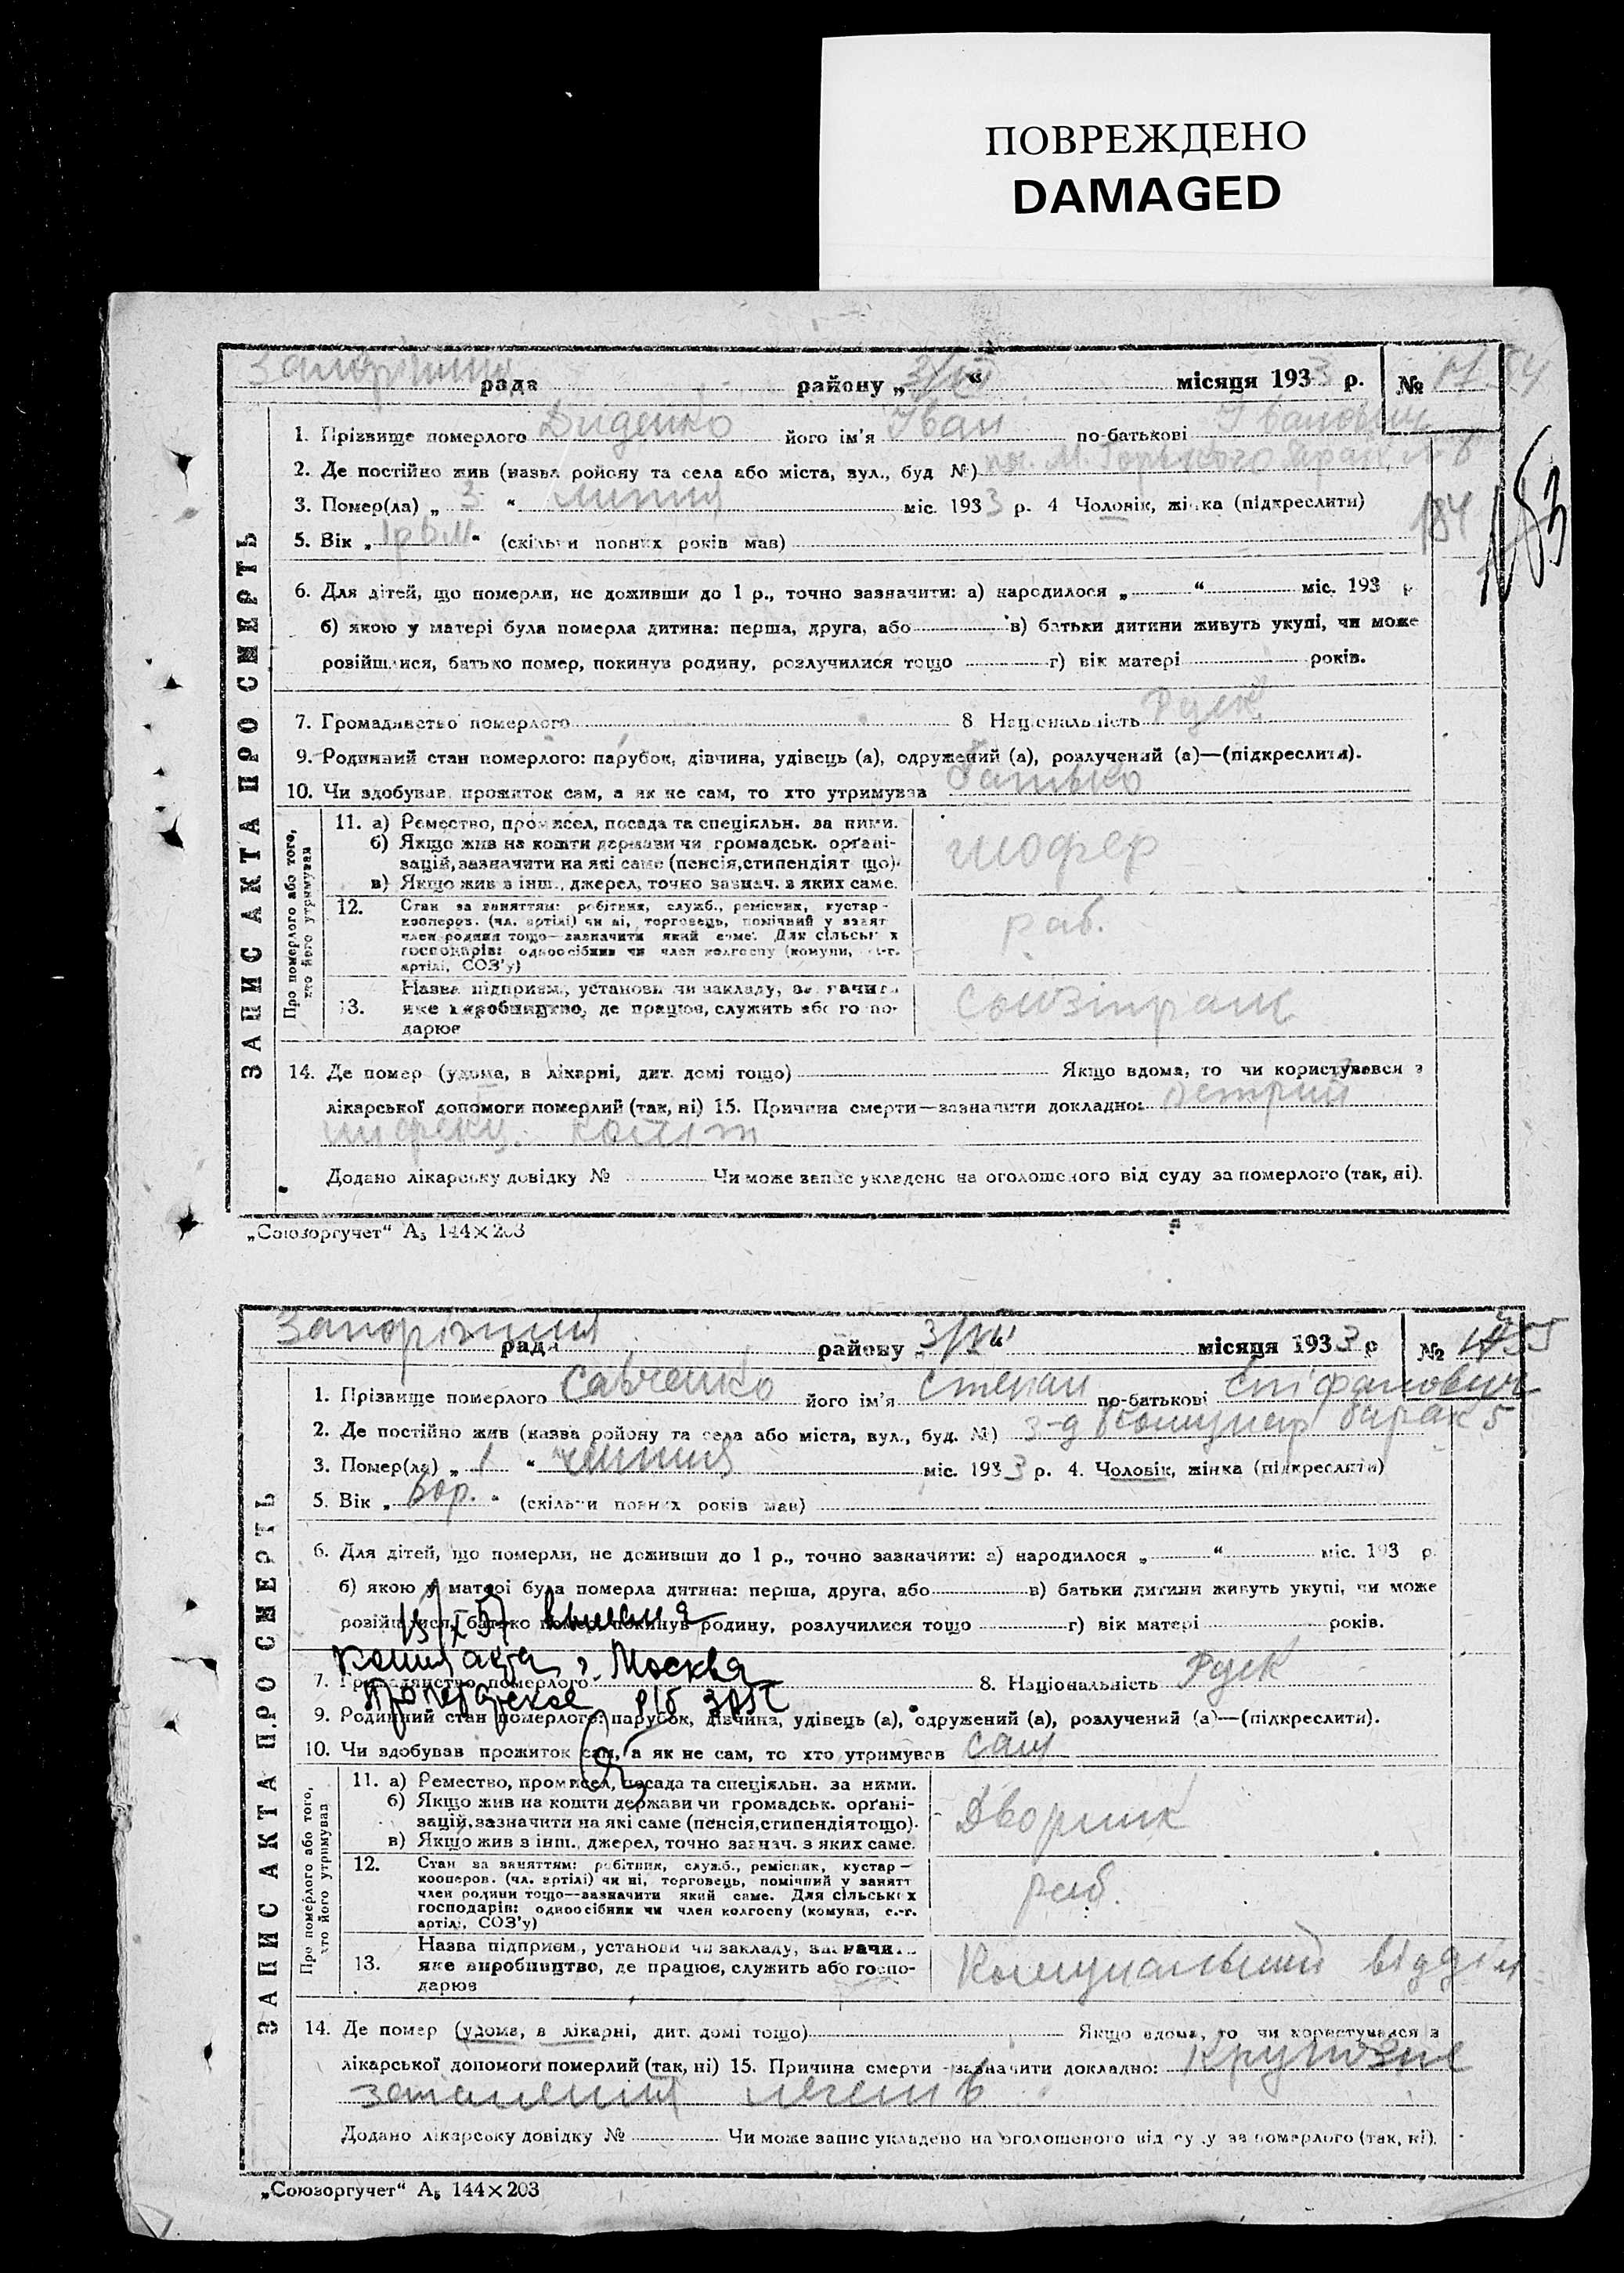 ПОВРЕЖДЕНО
DAMAGED
рада району „3/VII“ місяця 1933 р. №
ЗАПИС АКТА ПРО СМЕРТЬ
1. Прізвище померлого Диденко його ім'я Іван по-батькові Іванович
2. Де постійно жив (назва ройону та села або міста, вул., буд №) М. Горького
3. Помер(ла) „3“ липня міс. 1933 р. 4 Чоловік, жінка (підкреслити)
184
183
5. Вік „1р 6м“ (скільки повних років мав)
6. Для дітей, що померли, не доживши до 1 р., точно зазначити: а) народилося „ “ міс. 193 р
б) якою у матері була померла дитина: перша, друга, або в) батьки дитини живуть укупі, чи може
розійшлися, батько помер, покинув родину, розлучилися тощо г) вік матері років.
7. Громадянство померлого 8 Національність Руск
9. Родинний стан померлого: парубок, дівчина, удівець (а), одружений (а), розлучений (а)—(підкреслити).
10. Чи здобував прожиток сам, а як не сам, то хто утримував батько
Про померлого або того, хто його утримував
11. а) Ремество, промисел, посада та спеціяльн. за ними.
б) Якщо жив на кошти держави чи громадськ. органі-
зацій, зазначити на які саме (пенсія, стипендія т що).
в) Якщо жив з інш., джерел, точно зазнач. з яких саме.
шофер
12. Стан за заняттям: робітник, служб., ремісник, кустар-
кооперов. (чл. артілі) чи ні, торговець, помічний у занят
член родини тощо—зазначити який саме. Для сільських
господарів: одноосібник чи член колгоспу (комуни, с.-г.
артілі, СОЗ'у)
раб.
13. Назва підприєм., установи чи закладу, зазначити
яке виробництво, де працює, служить або госпо-
дарює
Союзтранс
14. Де помер (удома, в лікарні, дит. домі тощо) Якщо вдома, то чи користувався з
лікарської допомоги померлий (так, ні) 15. Причина смерти—зазначити докладно:
коліт
Додано лікарську довідку № Чи може запис укладено на оголошеного від суду за померлого (так, ні).
„Союзоргучет“ А₅ 144×203
Запоріжжя рада району „3/VII“ місяця 1933 р №
ЗАПИС АКТА ПРО СМЕРТЬ
1. Прізвище померлого Савченко його ім'я Степан по-батькові Єпіфанович
2. Де постійно жив (назва ройону та села або міста, вул., буд. №) з-д Комунар барак 5
3. Помер(ла) „1“ липня міс. 1933 р. 4. Чоловік, жінка (підкреслити)
5. Вік „ “ (скільки повних років мав)
6. Для дітей, що померли, не доживши до 1 р., точно зазначити: а) народилося „ “ міс. 193 р.
б) якою у матері була померла дитина: перша, друга, або в) батьки дитини живуть укупі, чи може
розійшлися, батько помер, покинув родину, розлучилися тощо г) вік матері років.
Москва
7. Громадянство померлого 8. Національність Руск
9. Родинний стан померлого: парубок, дівчина, удівець (а), одружений (а), розлучений (а)—(підкреслити).
10. Чи здобував прожиток сам, а як не сам, то хто утримував сам
Про померлого або того, хто його утримував
11. а) Ремество, промисел, посада та спеціяльн. за ними.
б) Якщо жив на кошти держави чи громадськ. органі-
зацій, зазначити на які саме (пенсія, стипендія тощо).
в) Якщо жив з інш., джерел, точно зазнач. з яких саме.
Дворник
12. Стан за заняттям: робітник, служб., ремісник, кустар—
кооперов. (чл. артілі) чи ні, торговець, помічний у занятт
член родини тощо—зазначити який саме. Для сільських
господарів: одноосібник чи член колгоспу (комуни, с.-г.
артілі, СОЗ'у)
раб.
13. Назва підприєм., установи чи закладу, зазначити
яке виробництво, де працює, служить або госпо-
дарює
Комунальний відділ
14. Де помер (удома, в лікарні, дит. домі тощо) Якщо вдома, то чи користувався з
лікарської допомоги померлий (так, ні) 15. Причина смерти—зазначити докладно: Крупозне
запалення легенів
Додано лікарську довідку № Чи може запис укладено на оголошеного від суду за померлого (так, ні).
„Союзоргучет“ А₅ 144×203